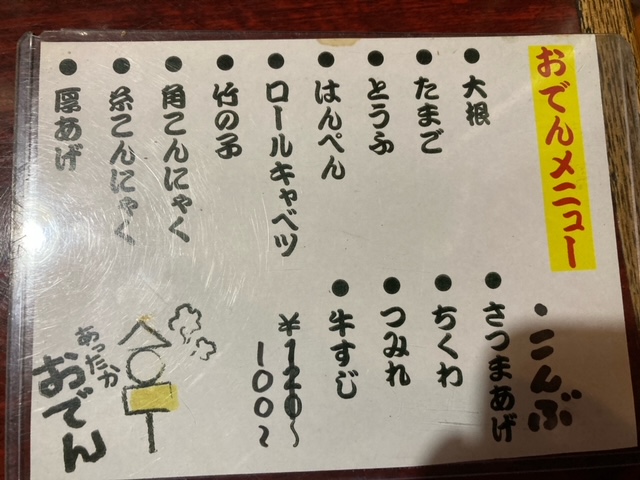 おでんメニュー
●大根
●たまご
●とうふ
●はんぺん
●ロールキャベツ
●竹の子
●角こんにゃく
●糸こんにゃく
●厚あげ
・こんぶ
●さつまあげ
●ちくわ
●つみれ
●牛すじ
¥120〜
100〜
あったか
おでん